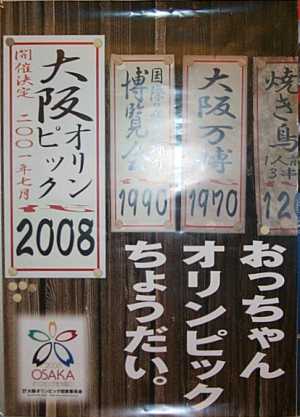 焼き鳥
大阪万博
1970
博覧会
1990
大阪オリンピック
開催決定 二〇〇一年七月
2008
おっちゃん
オリンピック
ちょうだい。
OSAKA